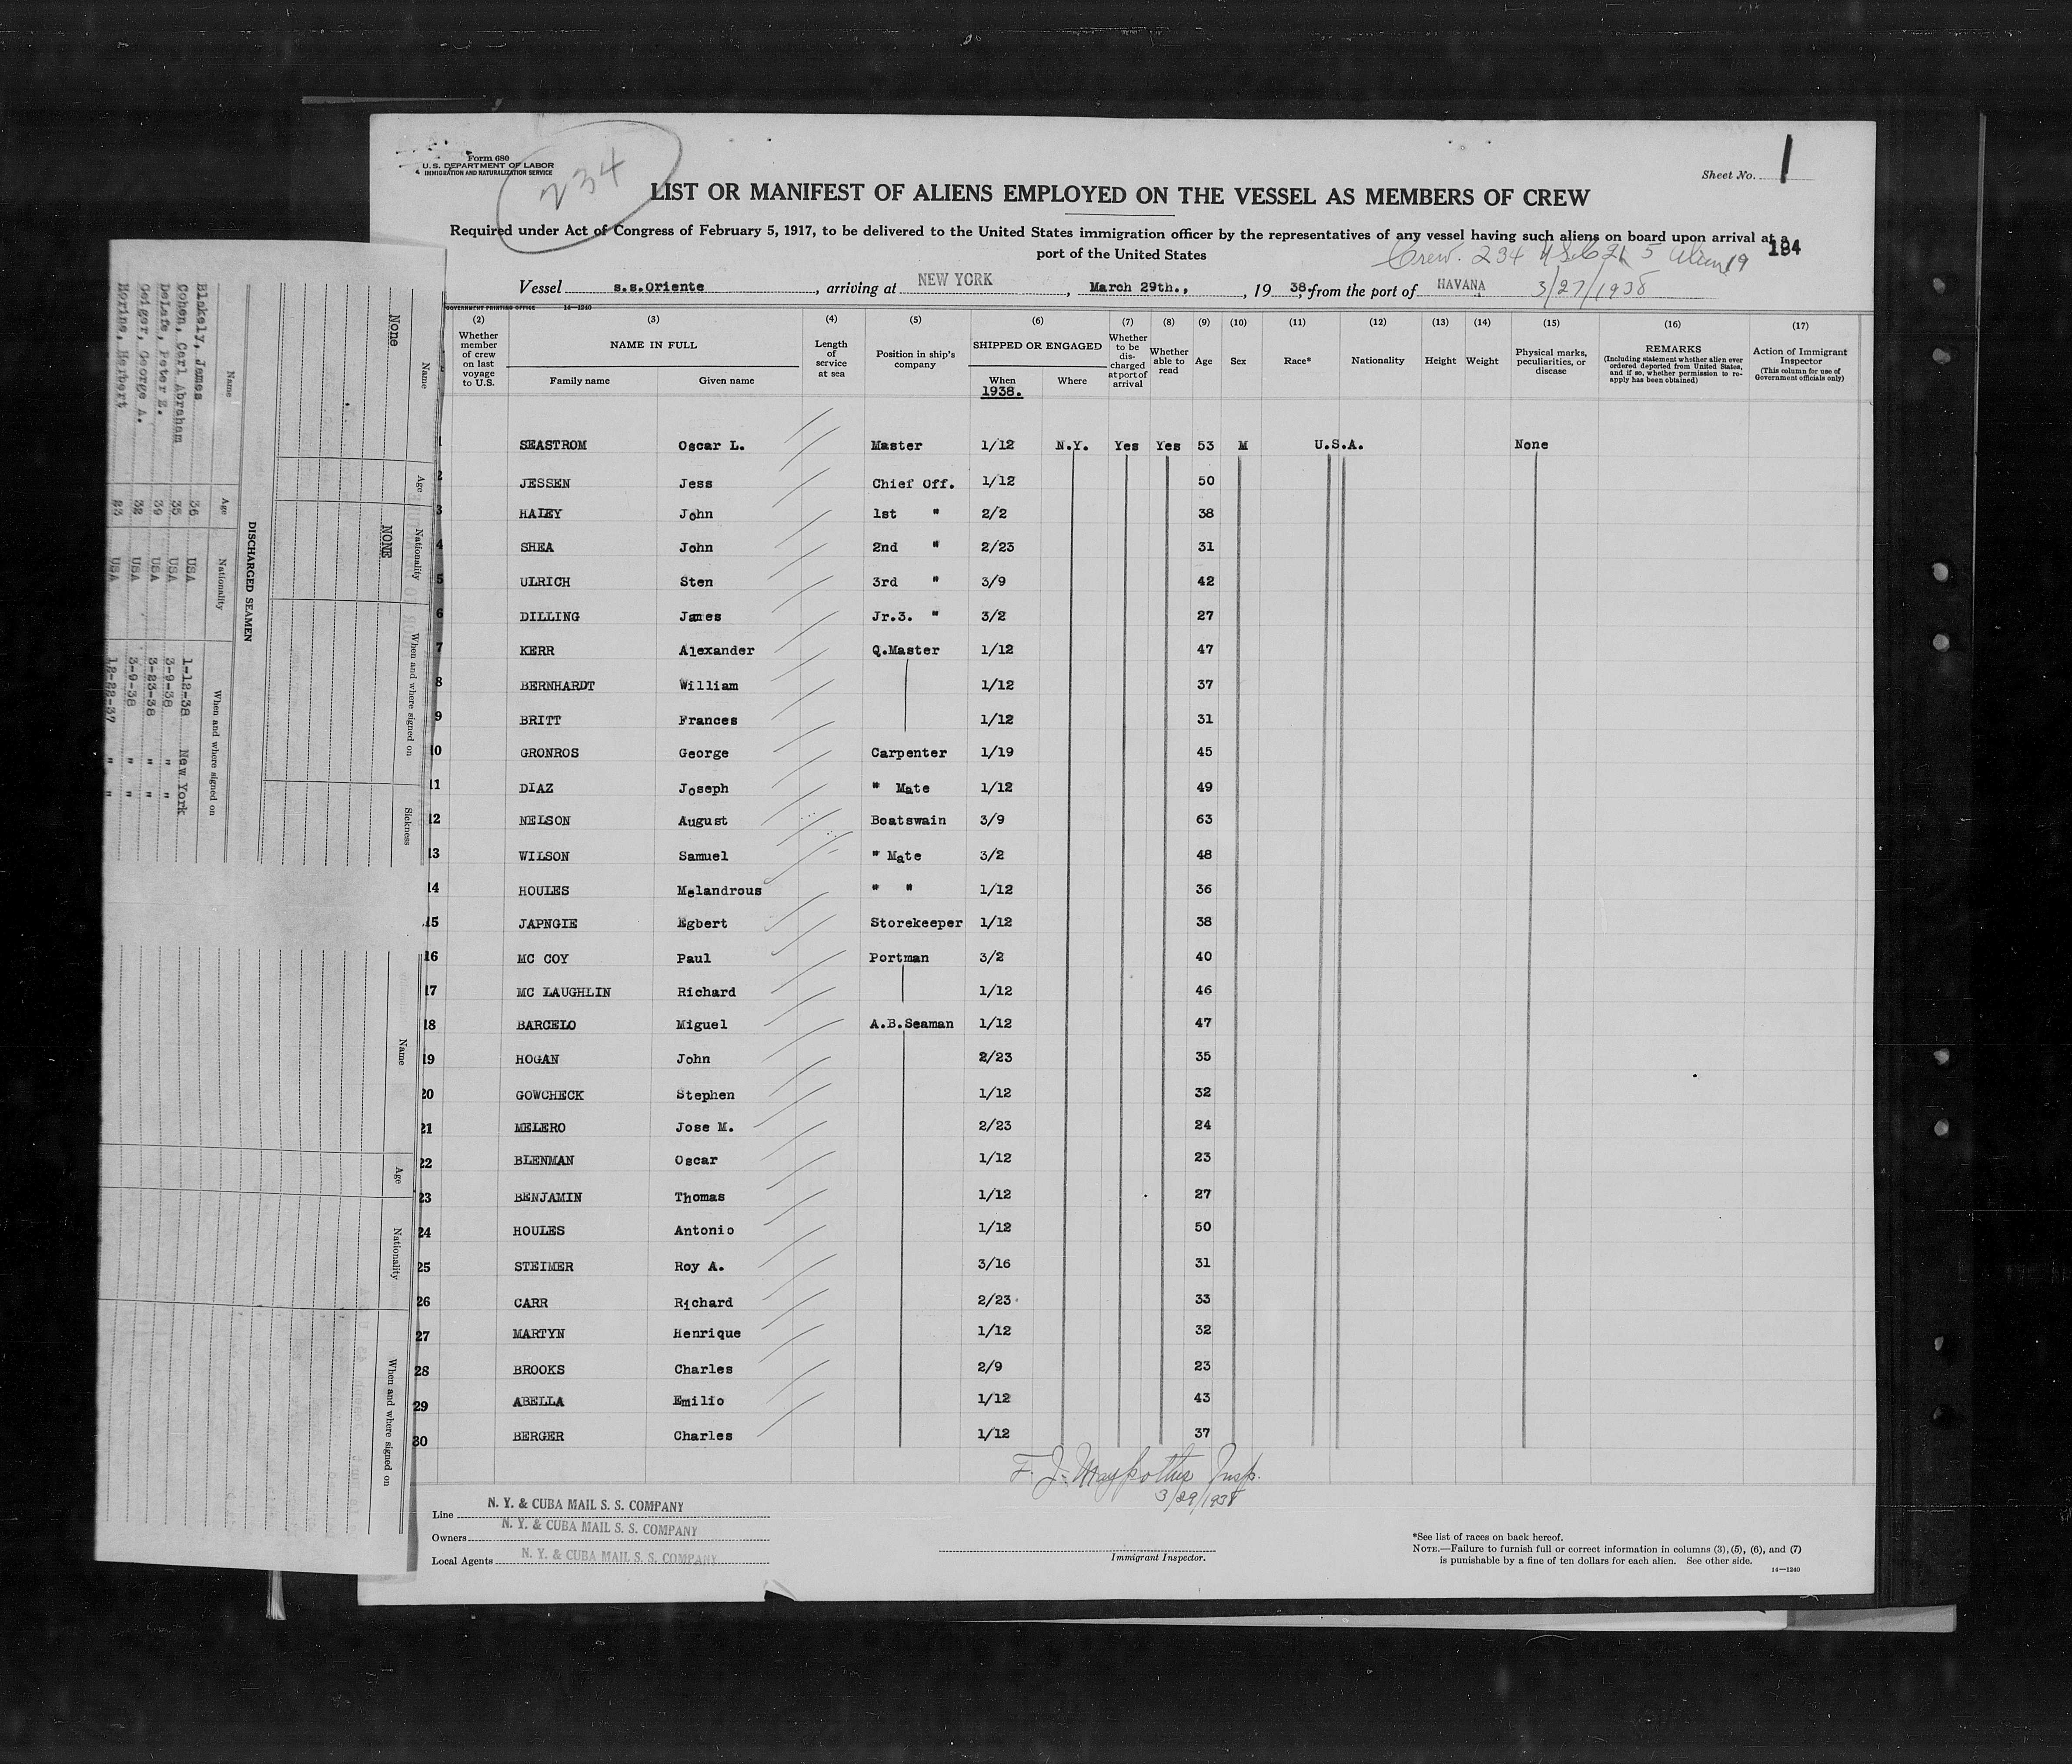 Form 680
U. S. DEPARTMENT OF LABOR
IMMIGRATION AND NATURALIZATION SERVICE
234
Sheet No. 1
LIST OR MANIFEST OF ALIENS EMPLOYED ON THE VESSEL AS MEMBERS OF CREW
Required under Act of Congress of February 5, 1917, to be delivered to the United States immigration officer by the representatives of any vessel having such aliens on board upon arrival at a
port of the United States
Crew. 234 5 19
Vessel s.s.Oriente, arriving at NEW YORK, March 29th., , 19 38, from the port of HAVANA 3/27/1938
GOVERNMENT PRINTING OFFICE 14—1240
(2) (3) (4) (5) (6) (7) (8) (9) (10) (11) (12) (13) (14) (15) (16) (17)
Whether member of crew on last voyage to U.S.
NAME IN FULL
Family name Given name
Length of service at sea
Position in ship's company
SHIPPED OR ENGAGED
When Where
1938.
Whether to be discharged at port of arrival
Whether able to read
Age
Sex
Race*
Nationality
Height
Weight
Physical marks, peculiarities, or disease
REMARKS
(Including statement whether alien ever ordered deported from United States, and if so, whether permission to reapply has been obtained)
Action of Immigrant Inspector
(This column for use of Government officials only)
1 SEASTROM Oscar L. Master 1/12 N.Y. Yes Yes 53 M U.S.A. None
2 JESSEN Jess Chief Off. 1/12 50
3 HALEY John 1st " 2/2 38
4 SHEA John 2nd " 2/23 31
5 ULRICH Sten 3rd " 3/9 42
6 DILLING James Jr.3. " 3/2 27
7 KERR Alexander Q.Master 1/12 47
8 BERNHARDT William 1/12 37
9 BRITT Frances 1/12 31
10 GRONROS George Carpenter 1/19 45
11 DIAZ Joseph " Mate 1/12 49
12 NELSON August Boatswain 3/9 63
13 WILSON Samuel " Mate 3/2 48
14 HOULES Melandrous " " 1/12 36
15 JAPNGIE Egbert Storekeeper 1/12 38
16 MC COY Paul Portman 3/2 40
17 MC LAUGHLIN Richard 1/12 46
18 BARCELO Miguel A.B.Seaman 1/12 47
19 HOGAN John 2/23 35
20 GOWCHECK Stephen 1/12 32
21 MELERO Jose M. 2/23 24
22 BLENMAN Oscar 1/12 23
23 BENJAMIN Thomas 1/12 27
24 HOULES Antonio 1/12 50
25 STEIMER Roy A. 3/16 31
26 CARR Richard 2/23 33
27 MARTYN Henrique 1/12 32
28 BROOKS Charles 2/9 23
29 ABELLA Emilio 1/12 43
30 BERGER Charles 1/12 37
F. J. Insp.
3/29/1938
Line N. Y. & CUBA MAIL S. S. COMPANY
Owners N. Y. & CUBA MAIL S. S. COMPANY
Local Agents N. Y. & CUBA MAIL S. S. COMPANY
Immigrant Inspector.
*See list of races on back hereof.
NOTE.—Failure to furnish full or correct information in columns (3), (5), (6), and (7)
is punishable by a fine of ten dollars for each alien. See other side.
14—1240
Name Age Nationality When and where signed on Sickness
None NONE
DISCHARGED SEAMEN
Name Age Nationality When and where signed on
Blakely, James 36 USA 1-12-38 New York
Cohen, Carl Abraham 35 USA 3-9-38 " "
DeLafe, Peter E. 39 USA 3-23-38 " "
Geiger, George A. 32 USA 3-9-38 " "
Horine, Herbert 23 USA 12-22-37 " "
Name Age Nationality When and where signed on